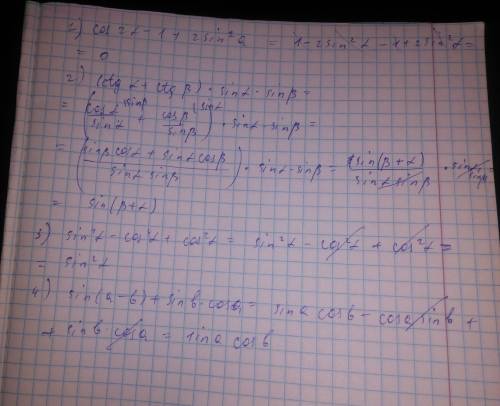 1) cos 2α - 1 + 2 sin²a = 1 - 2 sin²α - 1 + 2 sin²α =
= 0
2) (ctg α + ctg β) · sin α · sin β =
= (cos α / sin α + cos β / sin β) · sin α · sin β =
= ((sin β cos α + sin α cos β) / (sin α sin β)) · sin α · sin β = (sin(β + α) / (sin α sin β)) · sin α sin β
= sin(β + α)
3) sin²α - cos²α + cos²α = sin²α - cos²α + cos²α =
= sin²α
4) sin(a - b) + sin b · cos a = sin a cos b - cos a sin b +
+ sin b cos a = sin a cos b